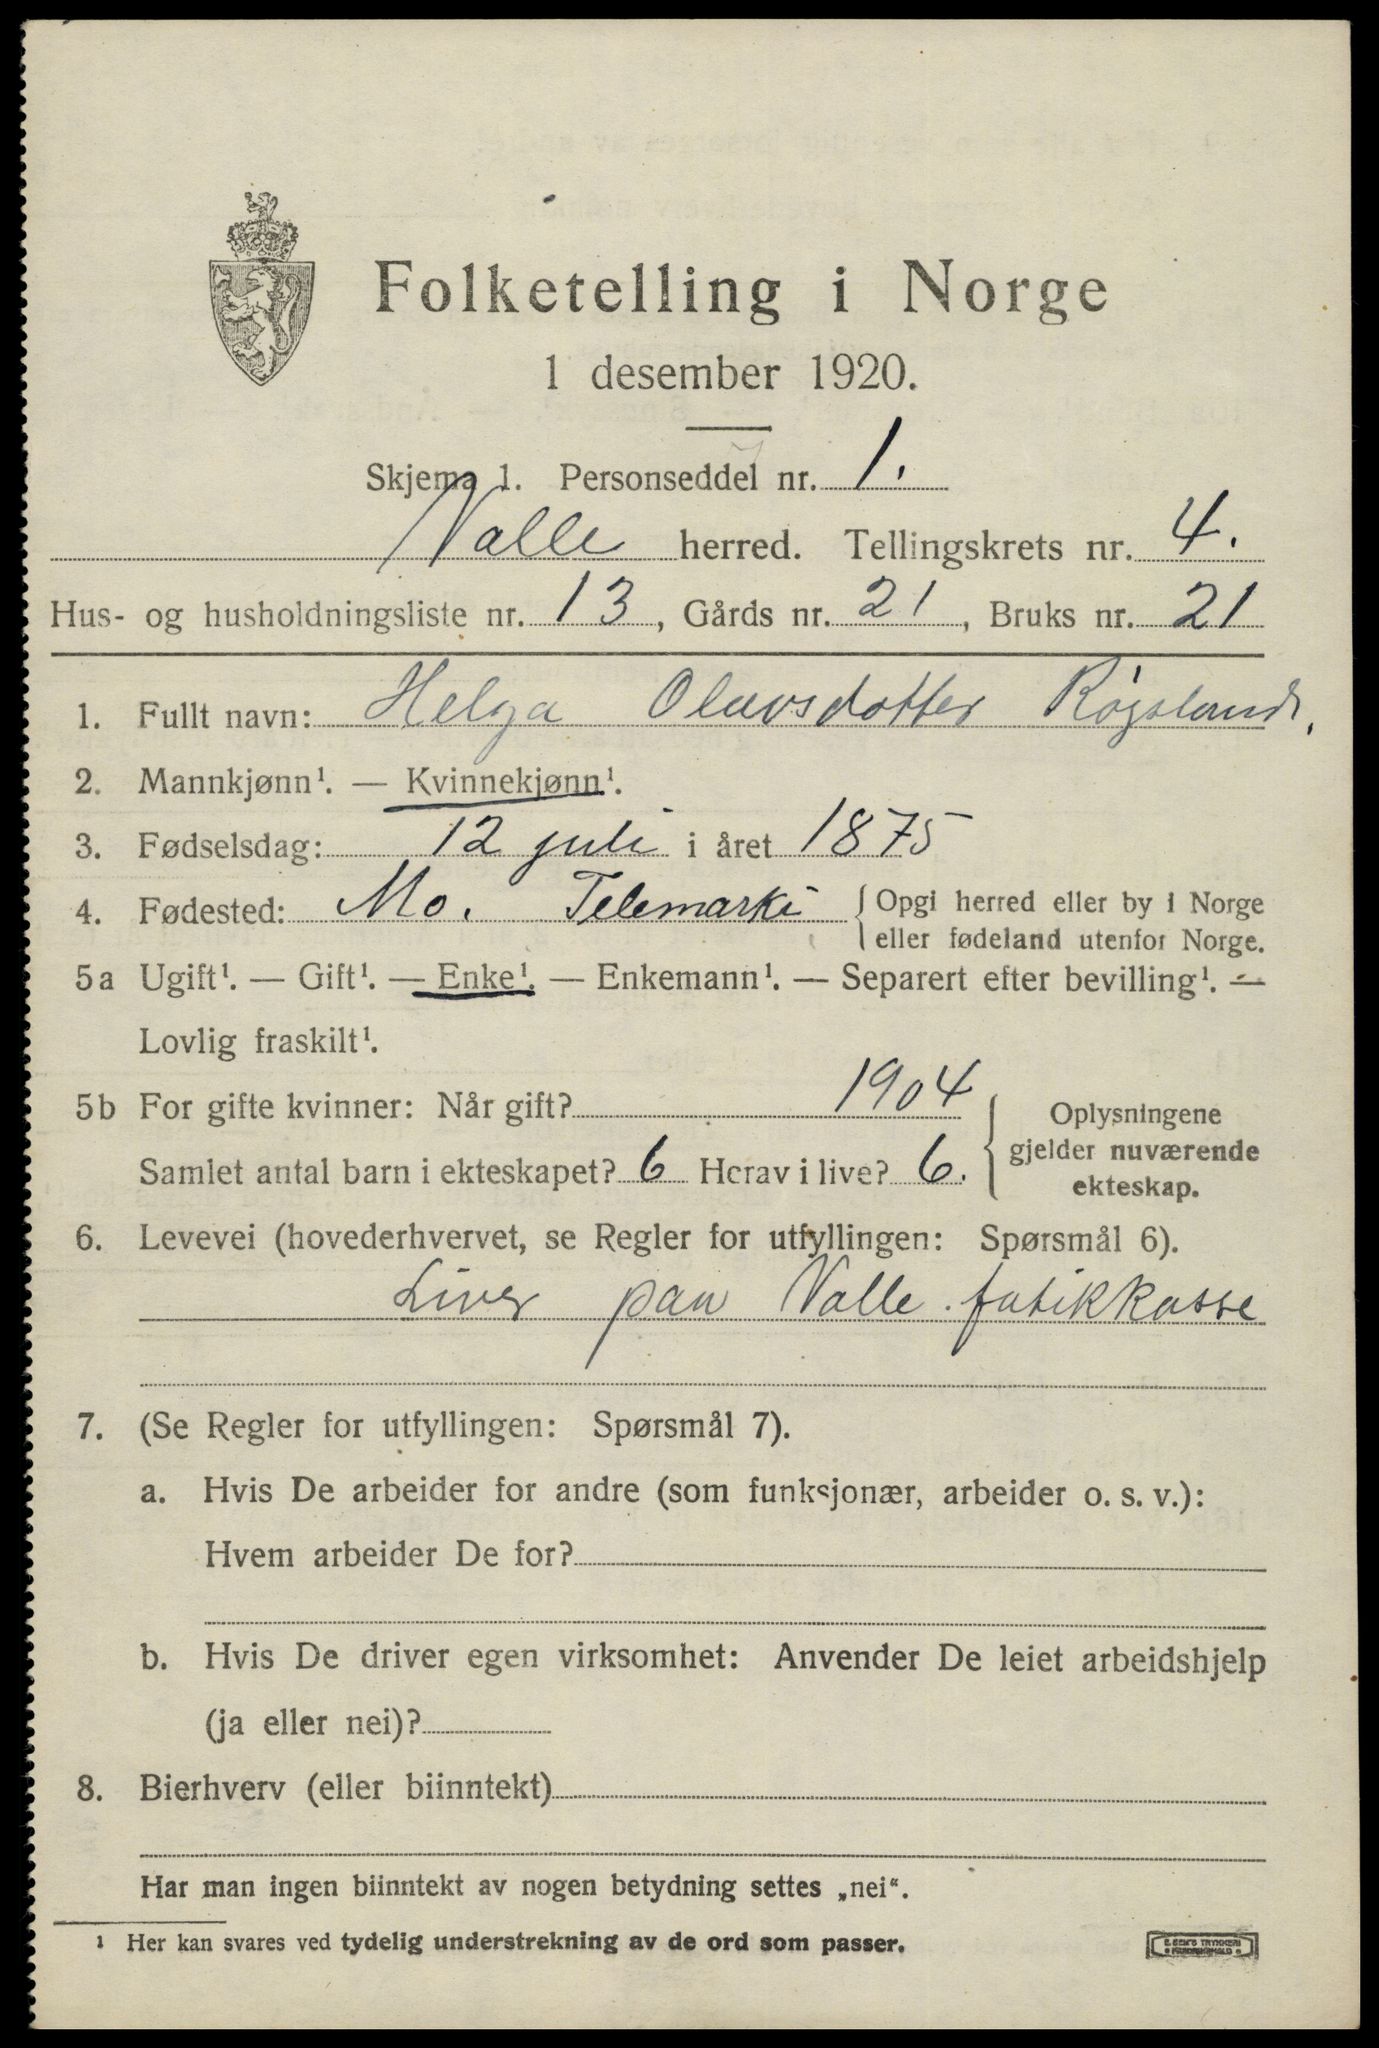 Folketelling i Norge
1 desember 1920.
Skjema 1. Personseddel nr. 1.
Valle herred. Tellingskrets nr. 4.
Hus- og husholdningsliste nr. 13, Gårds nr. 21, Bruks nr. 21
1. Fullt navn: Helga Olavsdotter Røgsland.
2. Mannkjønn¹. — Kvinnekjønn¹.
3. Fødselsdag: 12 juli i året 1875
4. Fødested: Mo. Telemarki { Opgi herred eller by i Norge
eller fødeland utenfor Norge.
5a Ugift¹. — Gift¹. — Enke¹. — Enkemann¹. — Separert efter bevilling¹. —
Lovlig fraskilt¹.
5b For gifte kvinner: Når gift? 1904
Samlet antal barn i ekteskapet? 6 Herav i live? 6.
{ Oplysningene
gjelder nuværende
ekteskap.
6. Levevei (hovederhvervet, se Regler for utfyllingen: Spørsmål 6).
Liver paa Valle fatikkasse
7. (Se Regler for utfyllingen: Spørsmål 7).
a. Hvis De arbeider for andre (som funksjonær, arbeider o. s. v.):
Hvem arbeider De for?
b. Hvis De driver egen virksomhet: Anvender De leiet arbeidshjelp
(ja eller nei)?
8. Bierhverv (eller biinntekt)
Har man ingen biinntekt av nogen betydning settes „nei“.
¹ Her kan svares ved tydelig understrekning av de ord som passer.